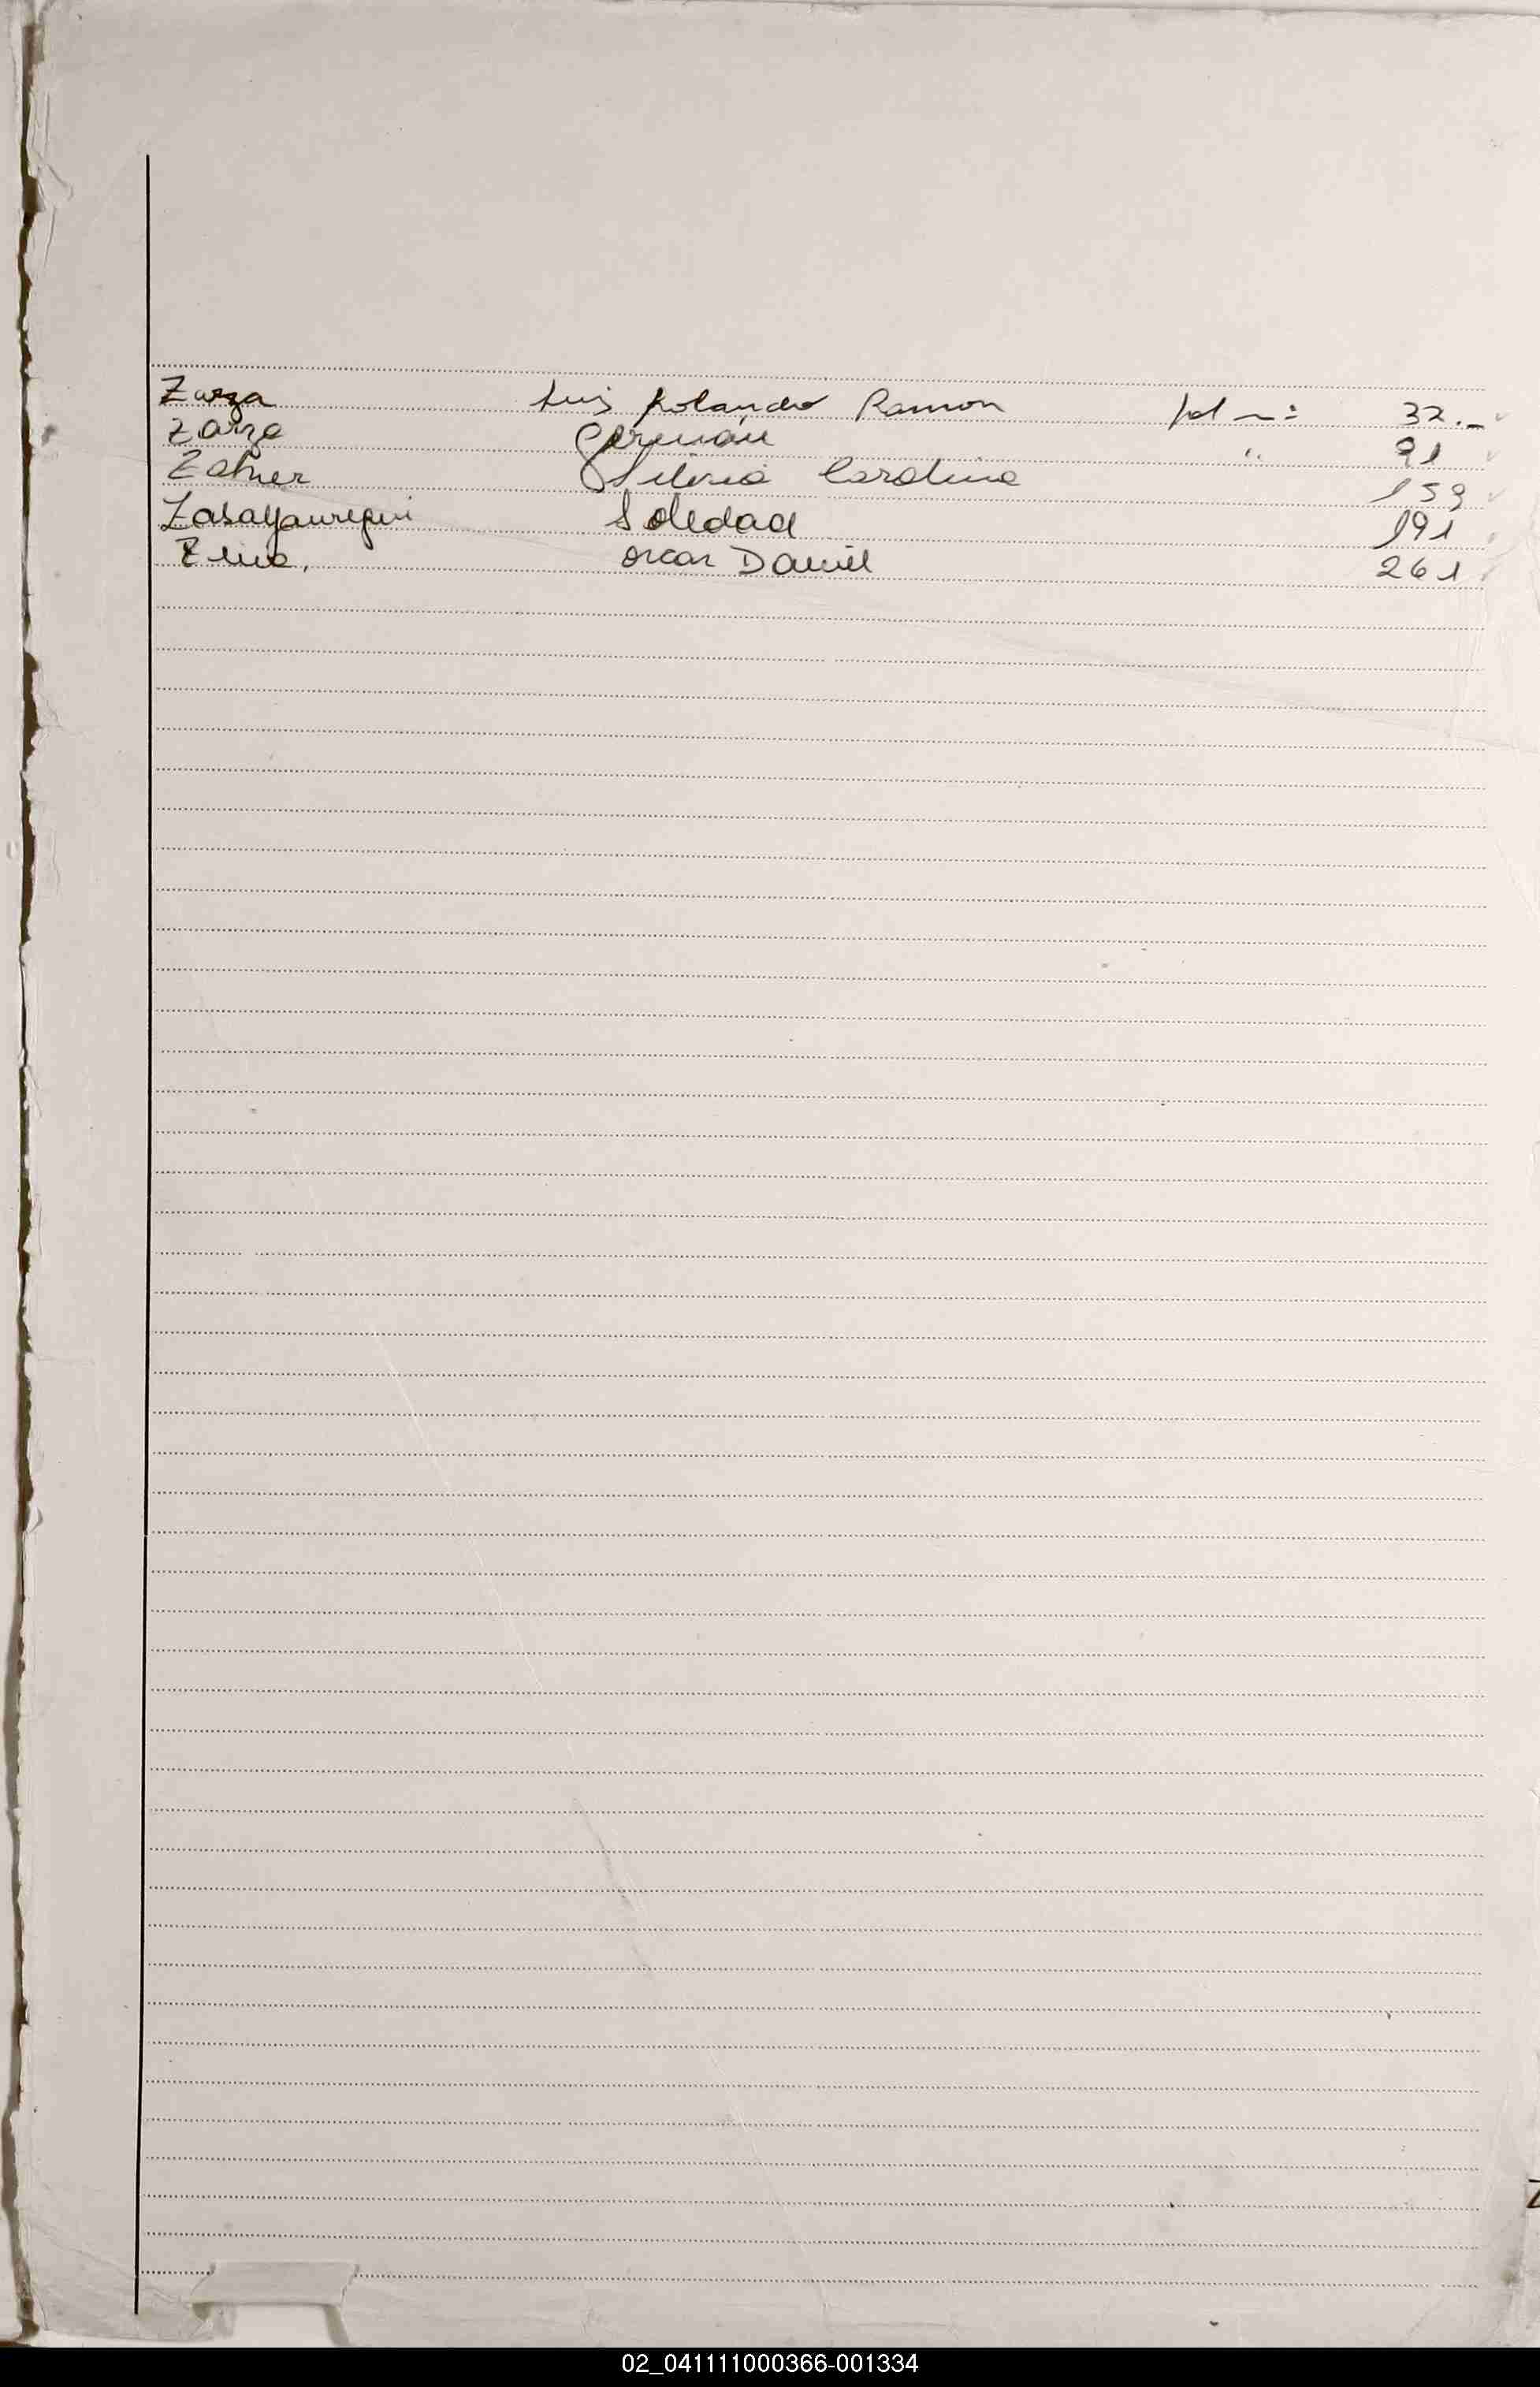 Zarza Luis Rolando Ramon fol nº: 32.-
Zarza Germán " 91
Zahner Silvia Carolina 159
Zasayauregui Soledad 191
Oscar Daniel 261
Z
02_041111000366-001334